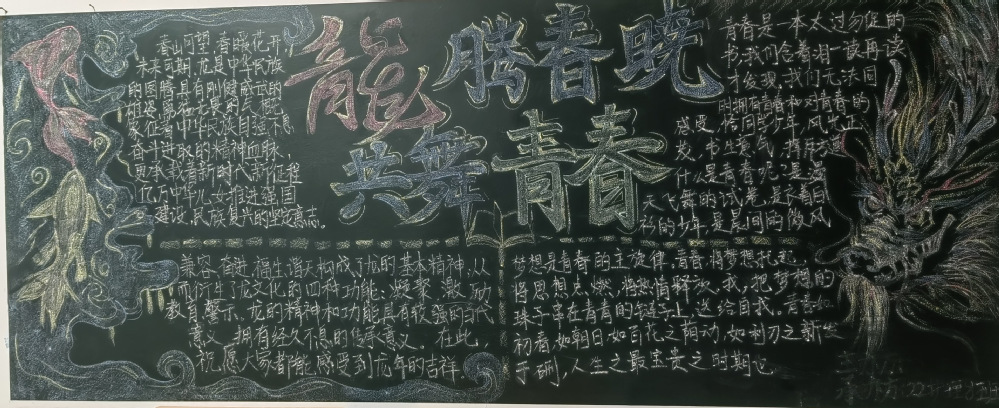 龍腾春晓
共舞青春
春山可望,春暖花开
未来可期,龙是中华民族
的图腾,具有刚健威武的
雄姿,勇猛无畏的气概
象征着中华民族自强不息
奋斗进取的精神血脉,
更承载着新的时代新征程
亿万中华儿女推进强国
建设,民族复兴的坚定意志。
青春是一本太过匆促的
书,我们含着泪一读再读
才发现,我们无法同
时拥有青春和对青春的
感受,恰同学少年,风华正
茂,书生意气,挥斥方
什么是青春呢?是
天飞舞的试卷,是衣着白
衫的少年,是晨间的微风
兼容、奋进、福生、谐天构成了龙的基本精神,从
而衍生了龙文化的四种功能:凝聚、激励
教育、警示、龙的精神和功能具有较强的当代
意义,拥有经久不息的传承意义。在此,
祝愿大家都能感受到龙年的吉祥。
梦想是青春的主旋律,青春将梦想托起
将思想点燃,将热情释放。我,把梦想的
珠子串在青青的链子上,送给自我。青春如
初春,如朝日,如百花之萌动,如利刃之新发
于硎,人生之最宝贵之时期也。